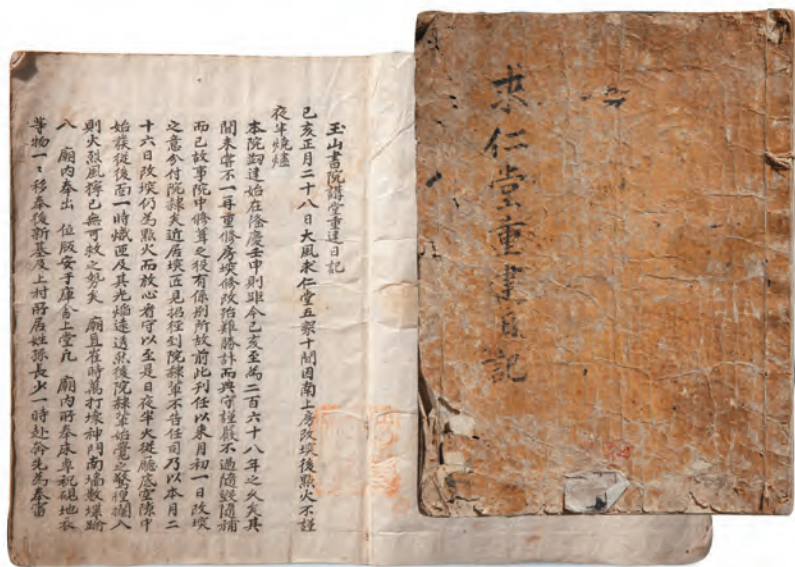 求仁堂重建日記
玉山書院講堂重建日記
己亥正月二十八日大風求仁堂五架十間因南上房改堗後點火不謹
夜半燒燼
本院刱建始在隆慶壬申則距今己亥至爲二百六十八年之久矣其
間未嘗不一再重修房堗修改殆難勝計而典守謹嚴不過隨毁隨補
而已故事院中修葺之役有係別所故前此列任以來月初一日改堗
之意分付院隷矣近居堗匠見招徑到院隷輩不告任司乃以本月二
十六日改堗仍爲點火而放心看守以至是日夜半火從廳底空隙中
始發從後面一時熾匝及其光焰遠透然後院隷輩始覺之驚惶攔入
則火烈風獰已無可救之勢矣 廟直崔時萬打壞神門南墻數堞踰
入 廟內奉出 位版安于庫舍上堂凡 廟內所奉床卓祝硯地衣
等物一々移奉後新基及上村所居姓孫長少一時赴會先爲奉審